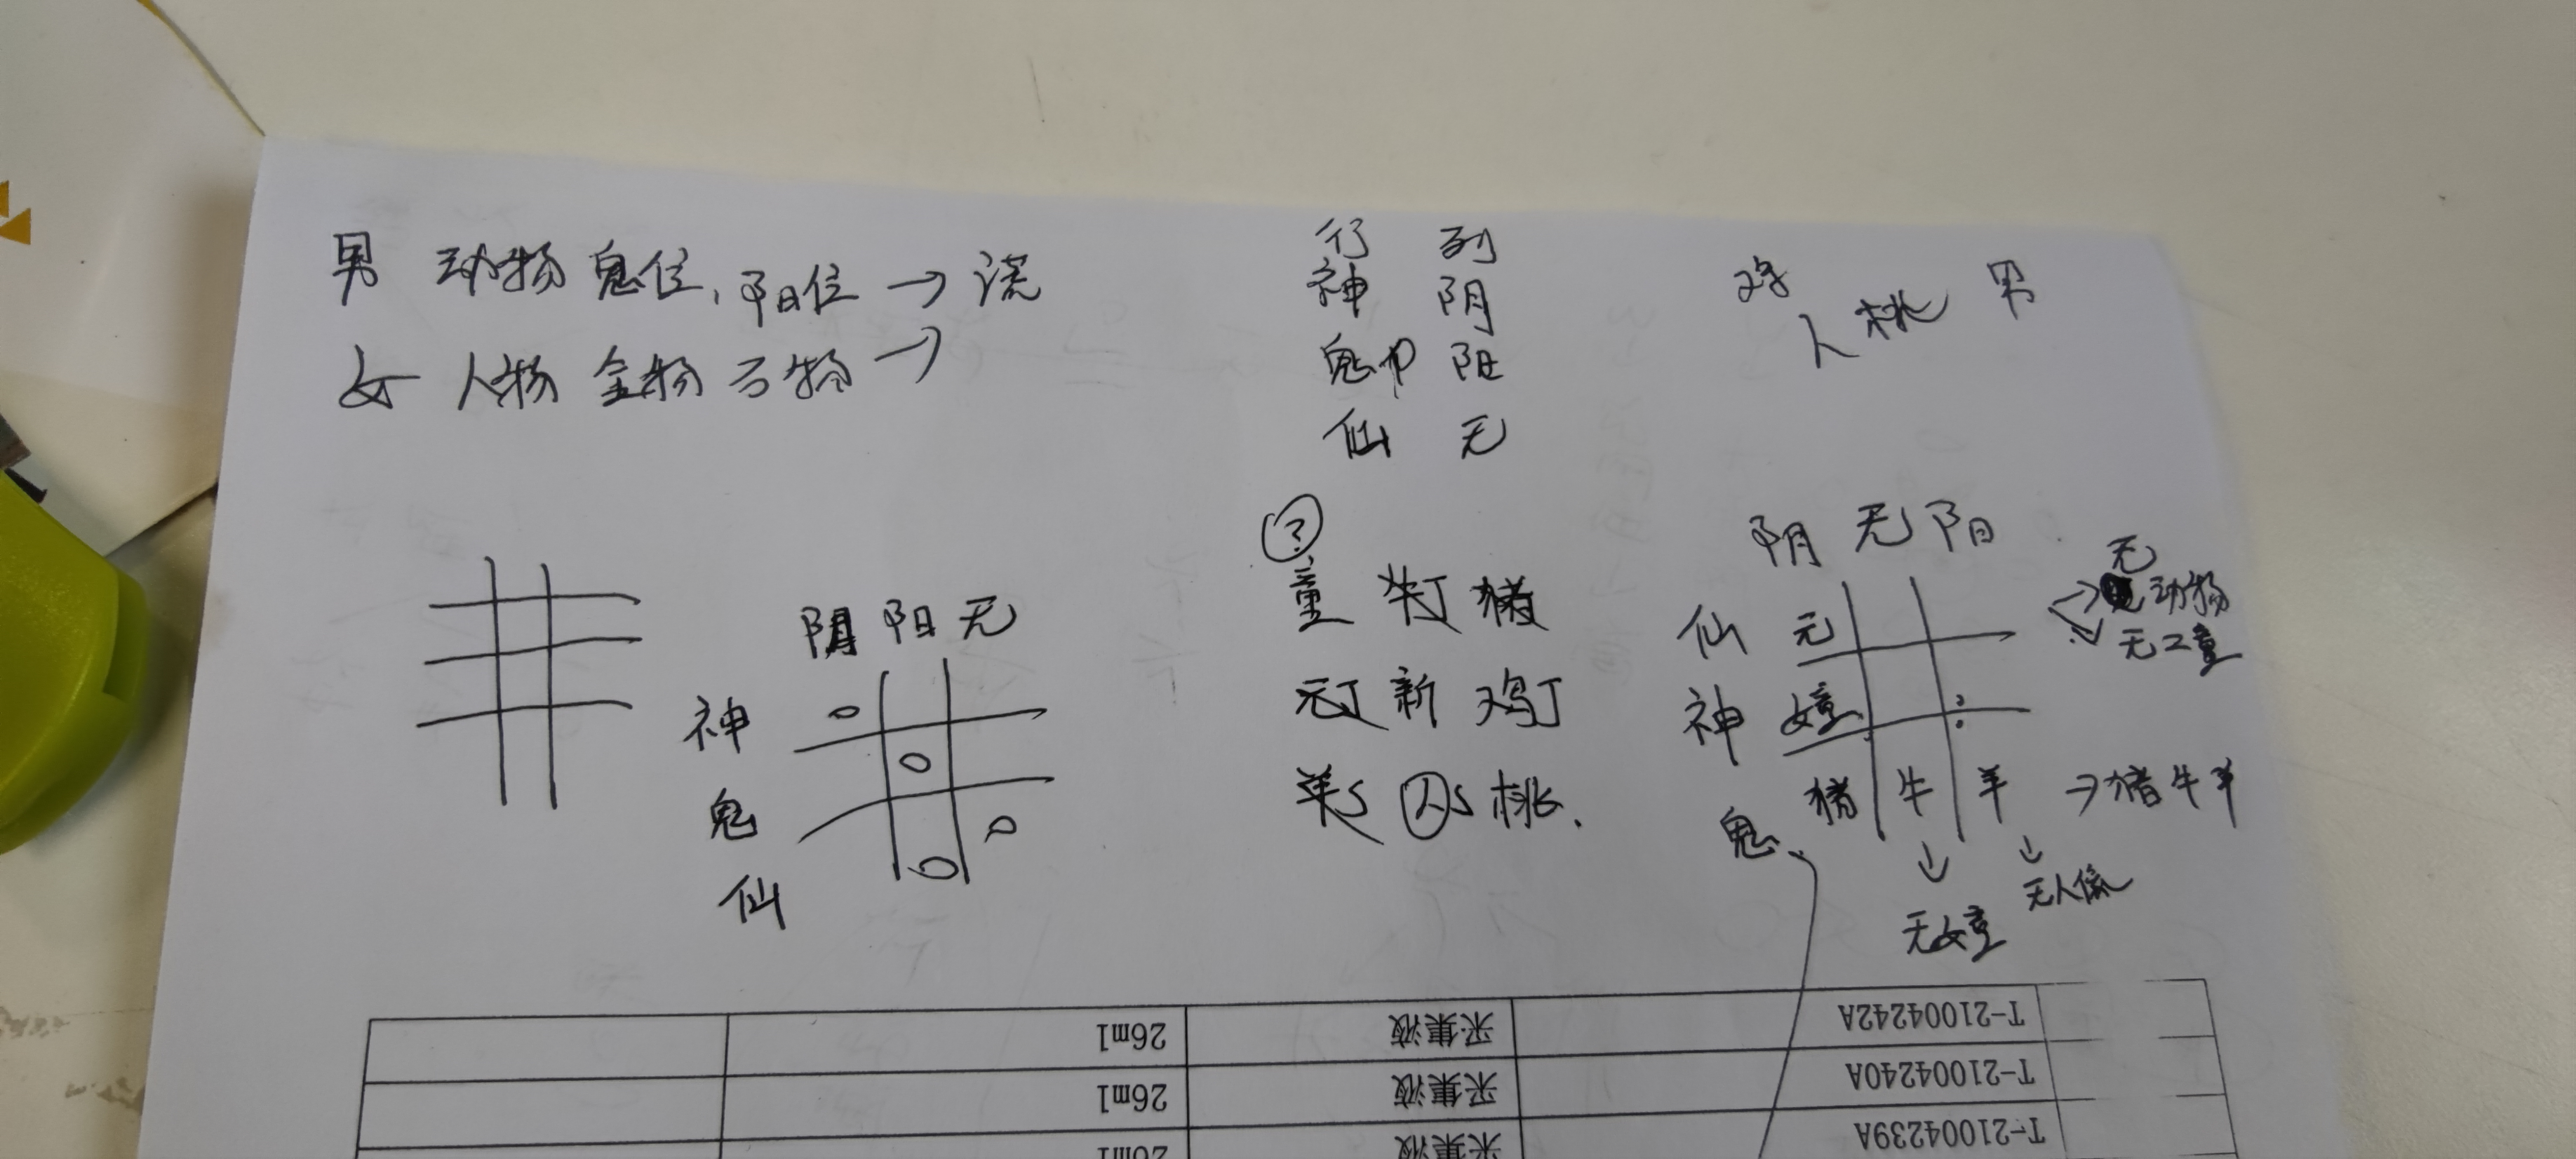 男 动物 鬼位, 阳位 → 谎
女 人物 金物 石物 →
行 列
神 阴
鬼 阳
仙 无
鸡
人 桃 男
阴 阳 无
神
鬼
仙
?
童 牛丁 猪
元丁 新 鸡丁
羊S 人S 桃
阴 无 阳
仙 元
神 女童
鬼 猪 牛 羊 → 猪牛羊
无
动物
无女童
无人像
T-21004242A 采集液 26ml
T-21004240A 采集液 26ml
T-21004239A 采集液 26ml